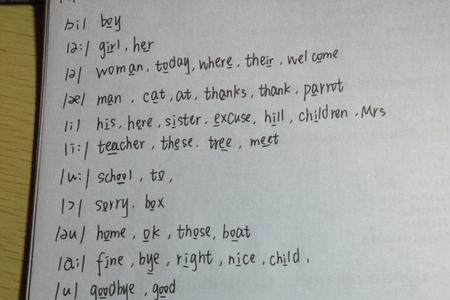 ɔi/ boy
/ə:/ girl, her
/ə/ woman, today, where, their, welcome
/æ/ man, cat, at, thanks, thank, parrot
/i/ his, here, sister, excuse, hill, children, Mrs
/i:/ teacher, these, tree, meet
/u:/ school, to,
/ɔ/ sorry, box
/əu/ home, ok, those, boat
/ai/ fine, bye, right, nice, child,
/u/ goodbye, good